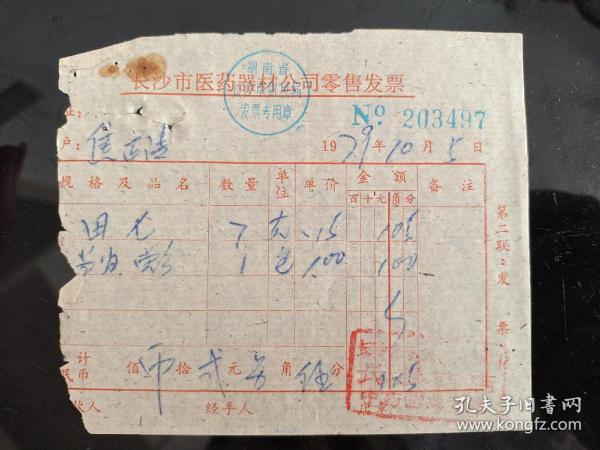 长沙市医药器材公司零售发票
湖南省
发票专用章
No 203497
户：焦
1979年10月5日
规格及品名 数量 单位 单价 金额 备注
百十元角分
田七 7 克 .15 105
1 包 1.00 100
计
民币 佰 币 拾 贰 元 另 角 伍 分 2.05
款人 经手人 章
第二联：发票
孔夫子旧书网